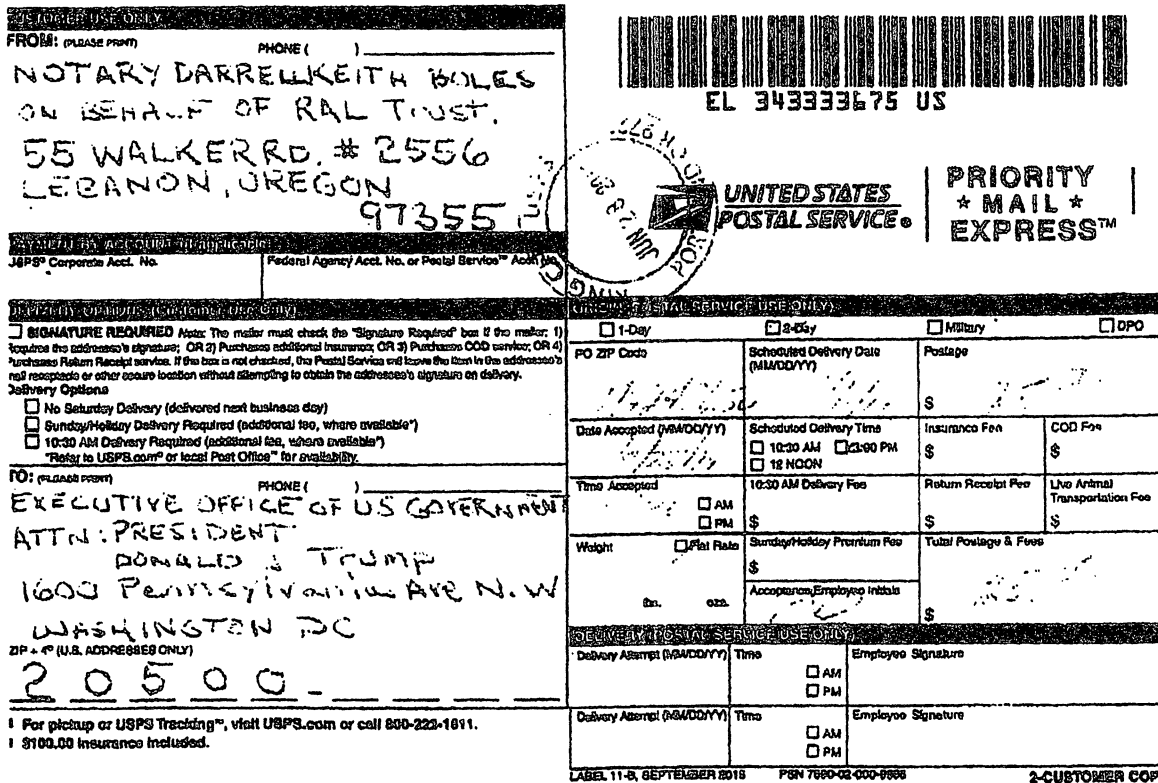 CUSTOMER USE ONLY
FROM: (PLEASE PRINT)
PHONE ( )
NOTARY DARRELLKEITH BOLES
ON BEHALF OF RAL TRUST.
55 WALKER RD. # 2556
LEBANON, OREGON
97355
PAYMENT BY ACCOUNT (if applicable)
USPS® Corporate Acct. No.
Federal Agency Acct. No. or Postal Service™ Acct. No.
DELIVERY OPTIONS (Customer Use Only)
SIGNATURE REQUIRED Note: The mailer must check the "Signature Required" box if the mailer: 1)
Requires the addressee's signature; OR 2) Purchases additional insurance; OR 3) Purchases COD service; OR 4)
Purchases Return Receipt service. If the box is not checked, the Postal Service will leave the item in the addressee's
mail receptacle or other secure location without attempting to obtain the addressee's signature on delivery.
Delivery Options
No Saturday Delivery (delivered next business day)
Sunday/Holiday Delivery Required (additional fee, where available*)
10:30 AM Delivery Required (additional fee, where available*)
*Refer to USPS.com® or local Post Office™ for availability.
TO: (PLEASE PRINT)
PHONE ( )
EXECUTIVE OFFICE OF US GOVERNMENT
ATTN: PRESIDENT
DONALD J TRUMP
1600 Pennsylvania Ave N.W
WASHINGTON DC
ZIP + 4® (U.S. ADDRESSES ONLY)
20500-
For pickup or USPS Tracking™, visit USPS.com or call 800-222-1811.
$100.00 insurance included.
EL 343333675 US
JUN 28
UNITED STATES
POSTAL SERVICE®
PRIORITY
★ MAIL ★
EXPRESS™
ORIGIN (POSTAL SERVICE USE ONLY)
1-Day 2-Day Military DPO
PO ZIP Code
Scheduled Delivery Date
(MM/DD/YY)
Postage
$
Date Accepted (MM/DD/YY)
Scheduled Delivery Time
10:30 AM 3:00 PM
12 NOON
Insurance Fee
$
COD Fee
$
Time Accepted
AM
PM
10:30 AM Delivery Fee
$
Return Receipt Fee
$
Live Animal
Transportation Fee
$
Weight
Flat Rate
lbs. ozs.
Sunday/Holiday Premium Fee
$
Total Postage & Fees
$
Acceptance Employee Initials
DELIVERY (POSTAL SERVICE USE ONLY)
Delivery Attempt (MM/DD/YY) Time Employee Signature
AM
PM
Delivery Attempt (MM/DD/YY) Time Employee Signature
AM
PM
LABEL 11-B, SEPTEMBER 2015 PSN 7690-02-000-9996 2-CUSTOMER COPY